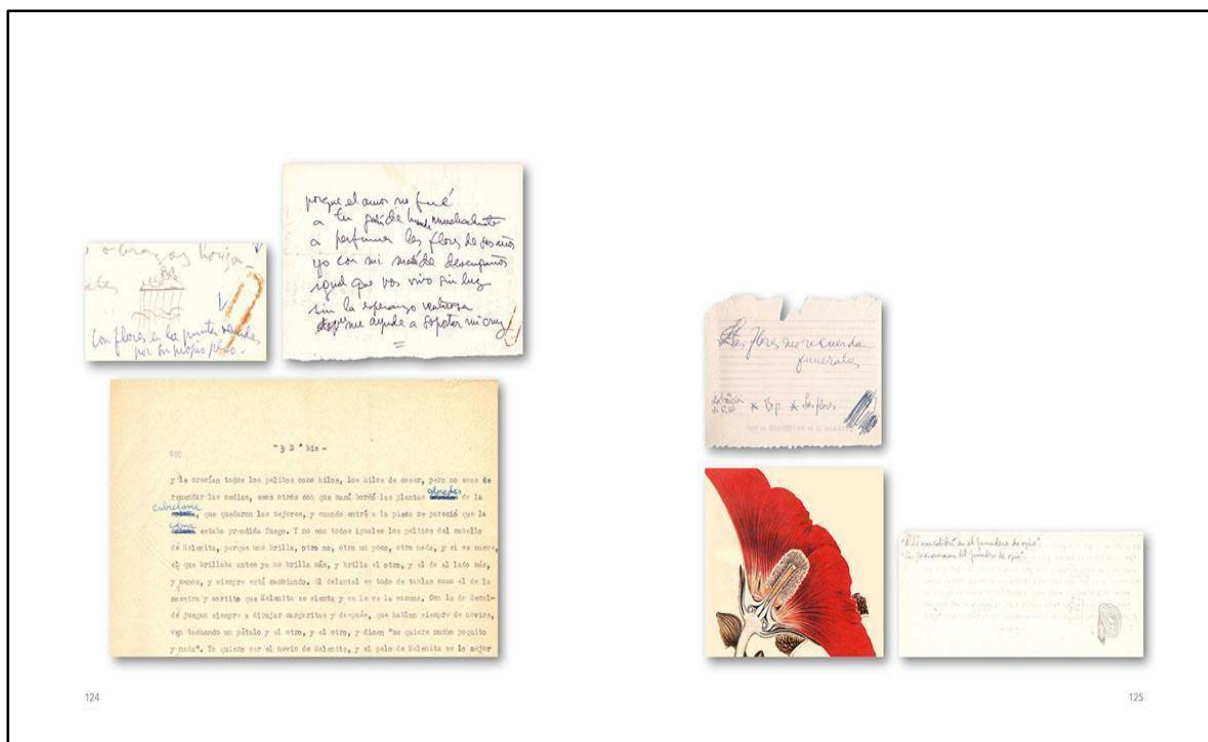 con flores en la punta
por su propio peso.
porque el amor no fué
a tu
a perfumar las flores de
yo con mi de desengaños
igual que vos vivo sin luz
sin la esperanza
me ayude a soportar mi cruz
-"3 D" bis-
y le crecían todos los pelitos como hilos, los hilos de coser, pero no esos de
remendar las medias, esos otros con que mamá bordó las plantas de la
cubrecama, que quedaron las mejores, y cuando entré a la pieza me pareció que la
cama estaba prendida fuego. Y no son todos iguales los pelitos del cabello
de Helenita, porque uno brilla, otro no, otro un poco, otro nada, y si se mueve,
el que brillaba antes ya no brilla más, y brilla el otro, y el de al lado más,
y menos, y siempre está cambiando. El delantal es todo de tablas como el de la
maestra y cortito que Helenita se sienta y se le ve la Con la de
de juegan siempre a dibujar margaritas y después, que hablan siempre de novios,
van tachando un pétalo y el otro, y el otro, y dicen "me quiere mucho poquito
y nada". Yo quiero ser el novio de Helenita, y el pelo de Helenita es lo mejor
124
Las flores no recuerdan
funerales
* * Las flores
125